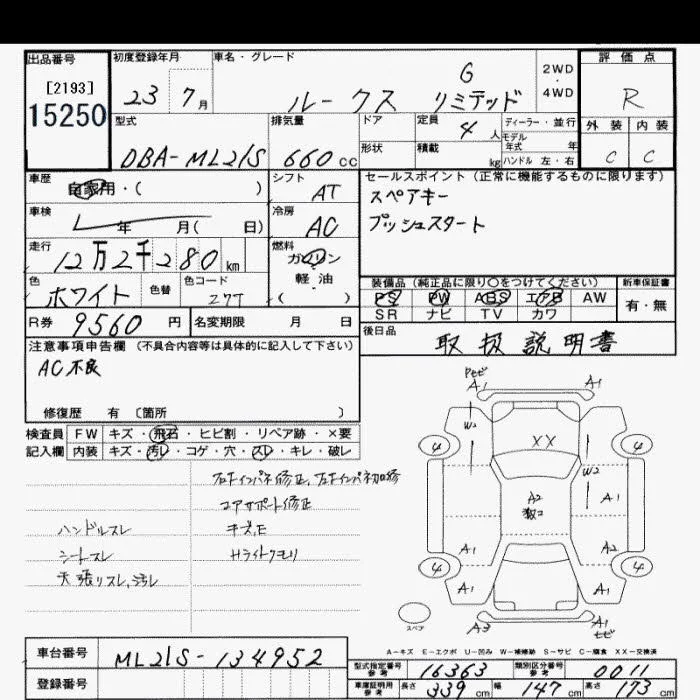 出品番号
[2193]
15250
初度登録年月
23 7月
車名・グレード
ルークス G リミテッド
2WD
・
4WD
評価点
R
外装 内装
C C
型式
DBA-ML21S
排気量
660cc
ドア
形状
定員
4人
積載
kg
ディーラー・並行
モデル
年式 年
ハンドル 左・右
車歴
自家用・( )
シフト
AT
車検
年 月( 日)
冷房
AC
走行
12万2千280km
燃料
ガソリン
軽油
( )
色
ホワイト
色替
色コード
Z7T
R券 9560円
名変期限 月 日
セールスポイント(正常に機能するものに限ります)
スペアキー
プッシュスタート
装備品(純正品に限り○をつけてください)
PS PW ABS エアB AW
SR ナビ TV カワ
新車保証書
有・無
後日品
取扱説明書
注意事項申告欄(不具合内容等は具体的に記入して下さい)
AC不良
修復歴 有 〔箇所 〕
検査員
記入欄
FW キズ・飛石・ヒビ割・リペア跡・×要
内装 キズ・汚レ・コゲ・穴・スレ・キレ・破レ
コアサポート修正
キズ、E
Hライトクモリ
ハンドルスレ
シートスレ
天張リスレ、汚レ
A1
A1
W2
XX
4
4
W2
A2
A1
A1
A1
4
4
A1
A1
A3
A1
スペア
A-キズ E-エクボ U-凹み W-補修跡 S-サビ C-腐食 XX-交換済
車台番号
ML21S-134952
登録番号
型式指定番号
参考
16363
類別区分番号
参考
0011
車庫証明用
参考
長さ 339cm 幅 147cm 高さ 173cm